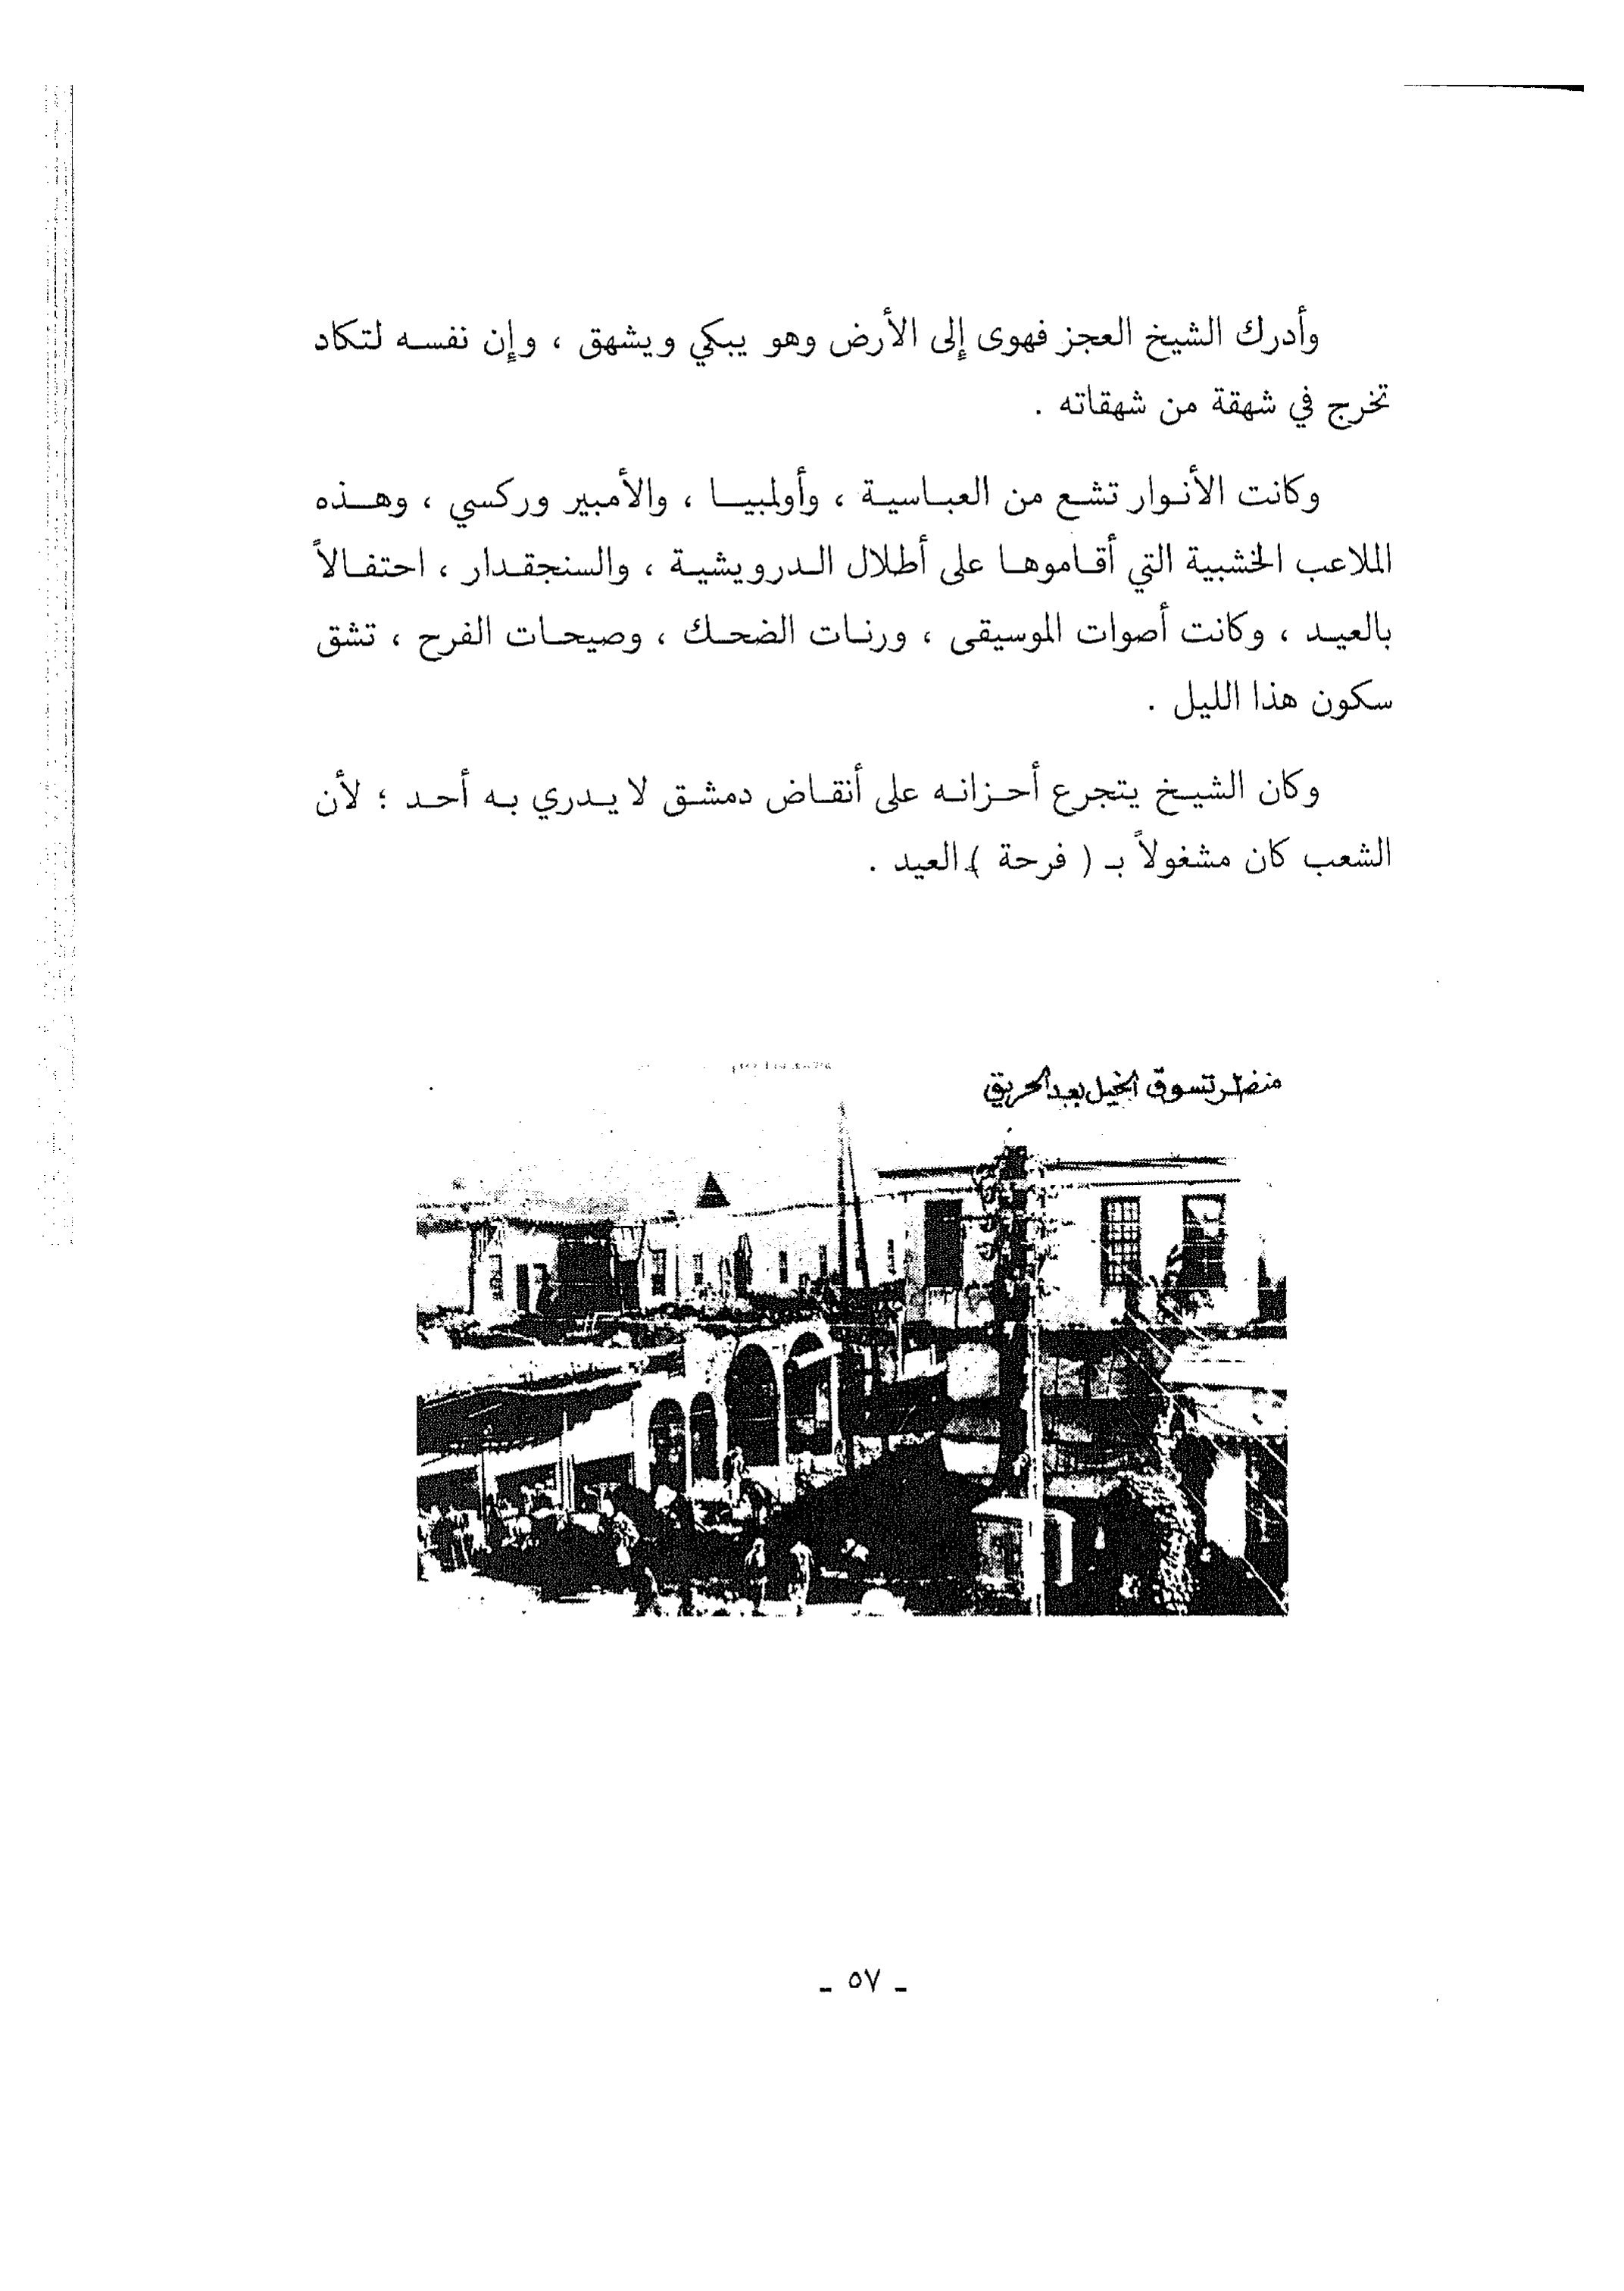 وأدرك الشيخ العجز فهوى إلى الأرض وهو يبكي ويشهق ، وإن نفسه لتكاد
تخرج في شهقة من شهقاته .
وكانت الأنوار تشع من العباسية ، وأولمبيا ، والأمبير وركسي ، وهذه
الملاعب الخشبية التي أقاموها على أطلال الدرويشية ، والسنجقدار ، احتفالاً
بالعيد ، وكانت أصوات الموسيقى ، ورنات الضحك ، وصيحات الفرح ، تشق
سكون هذا الليل .
وكان الشيخ يتجرع أحزانه على أنقاض دمشق لا يدري به أحد ؛ لأن
الشعب كان مشغولاً بـ ( فرحة ) العيد .
منضر تسوق الخيل بعد الحريق
ـ ٥٧ ـ